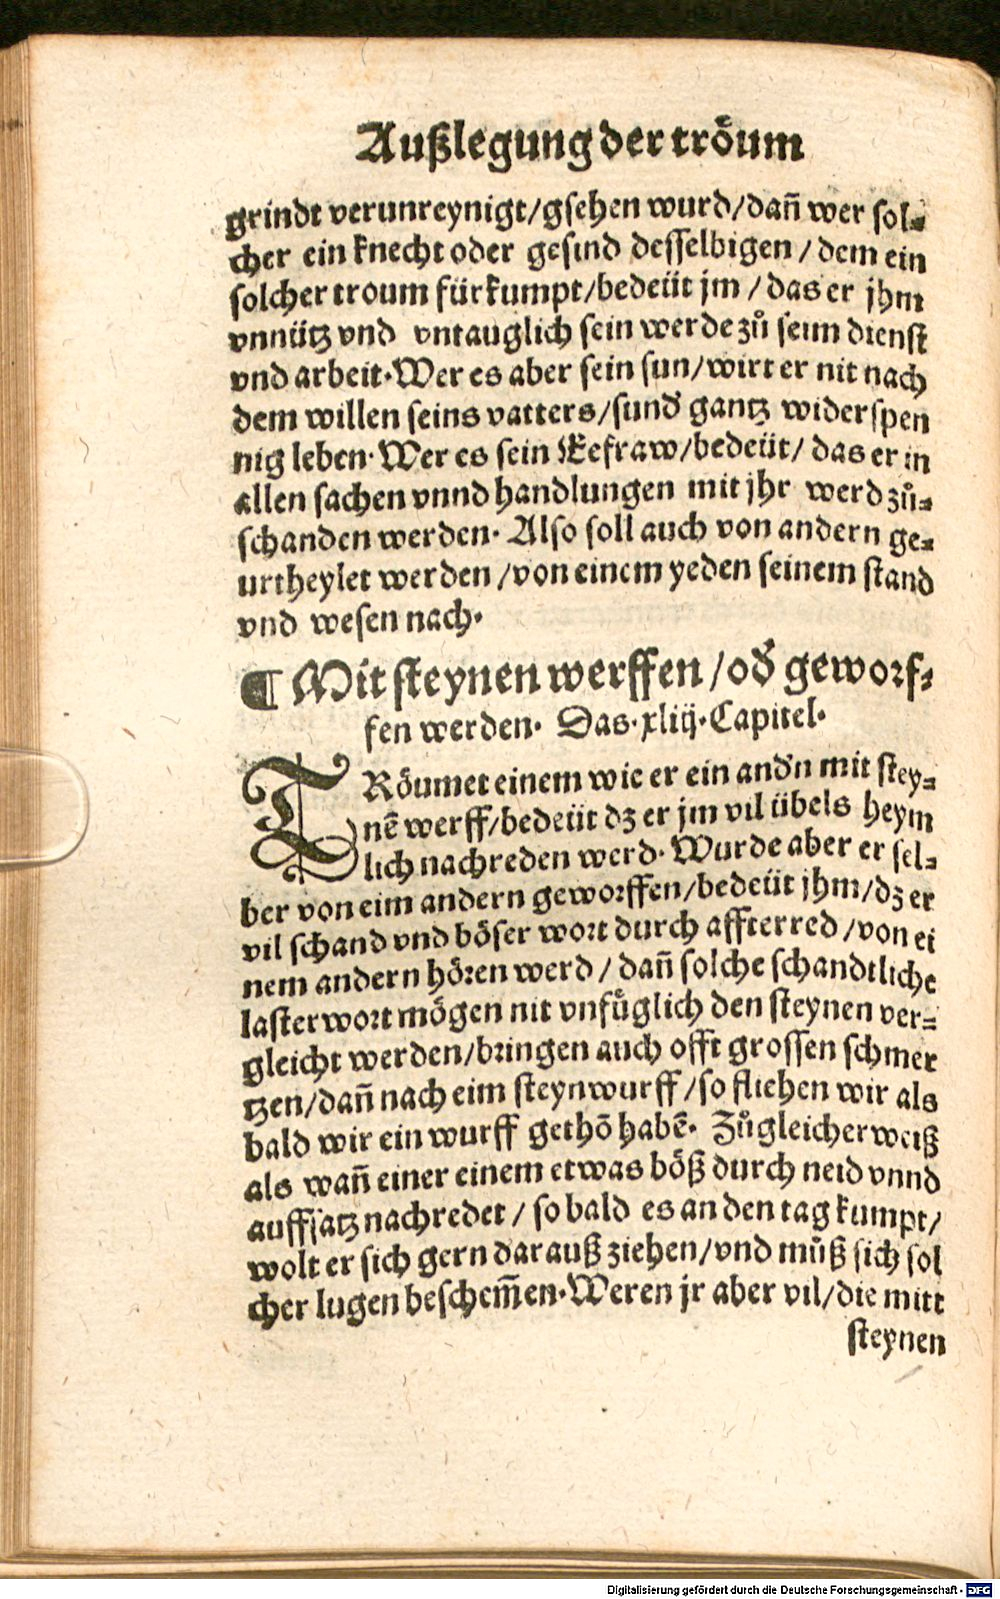 Außlegung der tröum
grindt verunreynigt/gsehen wurd/dañ wer sol⸗
cher ein knecht oder gesind desselbigen/dem ein
solcher troum fürkumpt/bedeüt jm/das er jhm
vnnütz vnd vntauglich sein werde zů seim dienst
vnd arbeit. Wer es aber sein sun/wirt er nit nach
dem willen seins vatters/sund̕ gantz widerspen
nig leben. Wer es sein Eefraw/bedeüt/das er in
allen sachen vnnd handlungen mit jhr werd zů⸗
schanden werden. Also soll auch von andern ge⸗
urtheylet werden/von einem yeden seinem stand
vnd wesen nach.
¶ Mit steynen werffen/od̕ geworf⸗
fen werden. Das.xliij.Capitel.
TRöumet einem wie er ein and̕n mit stey⸗
nē werff/bedeüt dz er jm vil übels heym
lich nachreden werd. Wurde aber er sel⸗
ber von eim andern geworffen/bedeüt jhm/dz er
vil schand vnd böser wort durch affterred/von ei
nem andern hören werd/dañ solche schandtliche
lasterwort mögen nit vnfůglich den steynen ver⸗
gleicht werden/bringen auch offt grossen schmer
tzen/dañ nach eim steynwurff/so fliehen wir als
bald wir ein wurff gethō habē. Zůgleicher weiß
als wañ einer einem etwas böß durch neid vnnd
auffsatz nachredet/so bald es an den tag kumpt/
wolt er sich gern darauß ziehen/vnd můß sich sol
cher lugen beschem̄en. Weren jr aber vil/die mitt
steynen
Digitalisierung gefördert durch die Deutsche Forschungsgemeinschaft - DFG